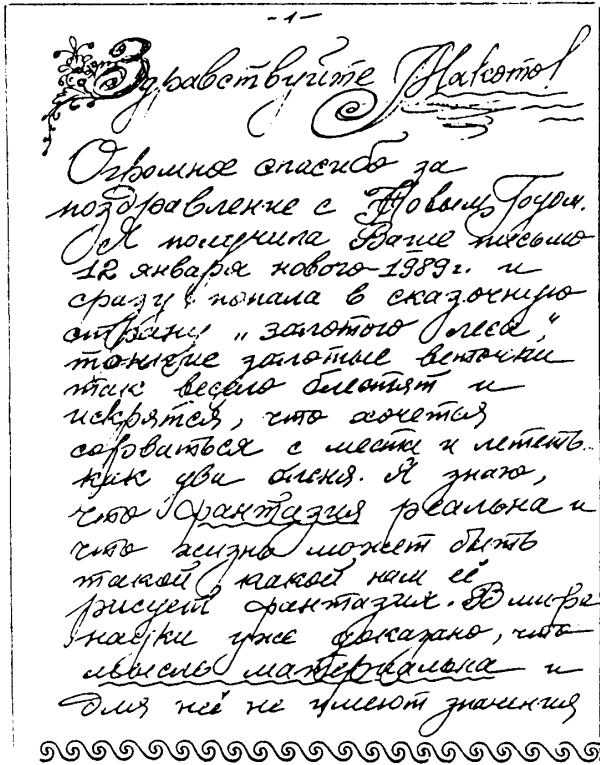 -1-
Здравствуйте Макото!
Огромное спасибо за
поздравление с Новым Годом.
Я получила Ваше письмо
12 января нового 1989г. и
сразу попала в сказочную
страну „золотого леса",
тонкие золотые веточки
так весело блестят и
искрятся, что хочется
сорваться с места и лететь
как два оленя. Я знаю,
что фантазия реальна и
что жизнь может быть
такой какой нам её
рисует фантазия. В мире
науки уже доказано, что
мысль материальна и
для неё не имеют значения